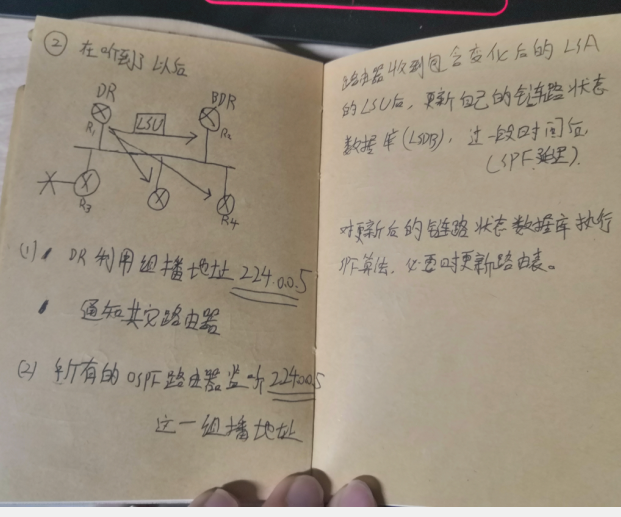 ② 在听到了以后
DR
BDR
LSU
R₁
R₂
R₃
R₄
(1) DR 利用组播地址 224.0.0.5
通知其它路由器
(2) 所有的 OSPF 路由器监听 224.0.0.5
这一组播地址
路由器收到包含变化后的 LSA
的 LSU后, 更新自己的链路状态
数据库 (LSDB), 过一段时间后,
(SPF 延迟).
对更新后的链路状态数据库执行
SPF算法, 必要时更新路由表。